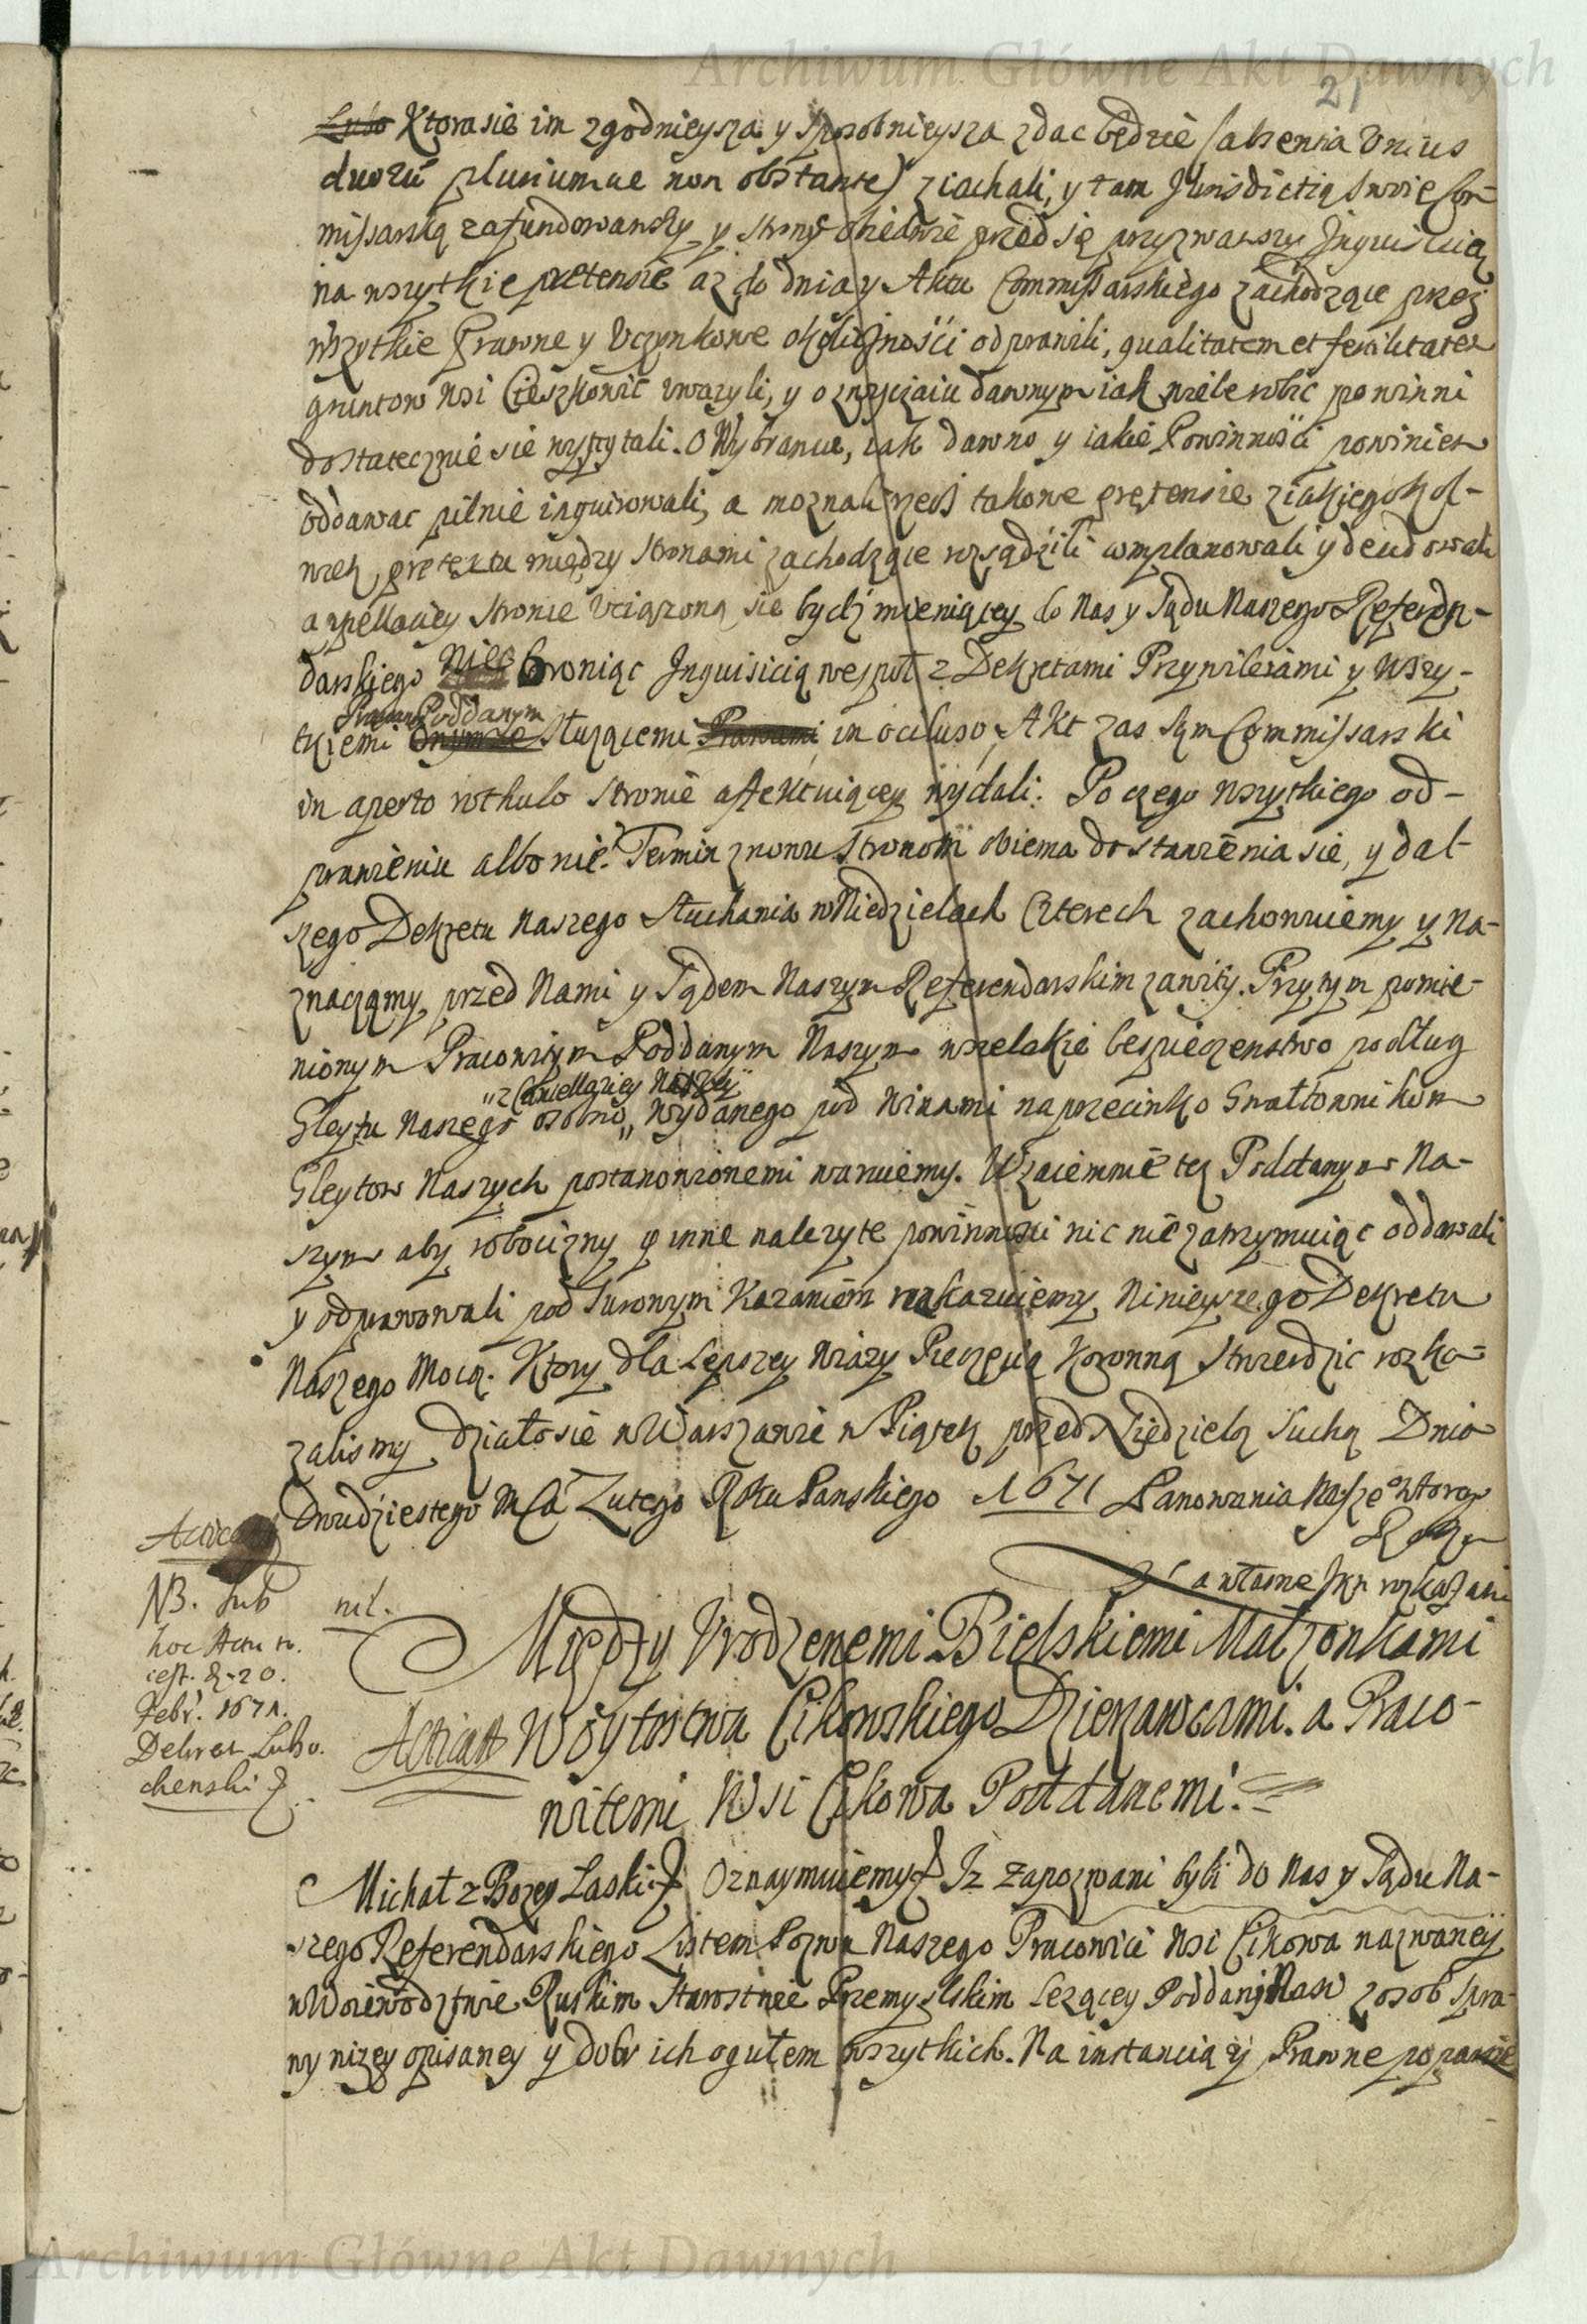 Archiwum Główne Akt Dawnych
21
Ktora sie im zgodnieysza y sposobnieysza zdac będzie (absentia Unius
duorū pluriumue non obstante) ziachali, y tam Jurisdictią swoię Com-
missarską zafundowawszy y strony obiedwie przed się przyzwawszy Inquisicią
na wszytkie pretensie az do dnia y Aktu Commissarskiego zachodzące przez
wszytkie Prawne y Uczynkowe okoliczności odprawili, qualitatem et fertilitatem
gruntow wsi Cieszkowic uwazyli, y o zwyczaiu dawnym iak wiele robic powinni
dostatecznie sie wypytali. O Wybrancu, iak dawno y iakie Powinności powinien
oddawac pilnie inquirowali, a moznali rzecz takowe pretensie z iakiegokol-
wiek pretextu między stronami zachodzące rozsądzili complanowali y decidowali
appellaciey stronie Uciązoną się bydź mieniącey do Nas y Sądu Naszego Referen-
darskiego nie broniąc Inquisicią wespoł z Dekretami Przywileiami y wszy-
Prawami Poddanym
tkiemi słuzącemi in ocluso, Akt zas sąm Commissarski
in aperto rothulo stronie affektuiącey wydali. Po czego wszytkiego od-
prawieniu albo nie: Termin znowu stronom obiema do stawienia sie, y dal-
szego Dekretu Naszego słuchania w Niedzielach Czterech zachowuiemy y na-
znaczamy przed Nami y Sądem Naszym Referendarskim zawity. Przy tym pomie-
nionym Pracowitym Poddanym Naszym wszelakie bespieczenstwo podług
"z Cancellariey Naszey"
Gleytu Naszego osobno " wydanego pod winami na przeciwko Gwałtownikom
Gleytow Naszych postanowionemi waruiemy. Wzaiemnie tez Poddanym Na-
szym aby robocizny y inne nalezyte powinności nic nie zatrzymuiąc oddawali
y odprawowali pod surowym karaniem rozkazuiemy Ninieyszego Dekretu
Naszego mocą. Ktory dla lepszey wiary Pieczęcią Koronną stwierdzic rozka-
zalismy Działo sie w Warszawie w Piątek przed Niedzielą Suchą Dnia
Dwudziestego Mca Lutego Roku Panskiego 1671 Panowania Nasze° wtorego
Roku
Za własne Jkr rozkazani
NB. sub
hoc Actu
20.
Febr. 1671.
Decret Lubo.
chenski
nil.
Między Urodzenemi Bielskiemi Małzonkami
Woytostwa Cikowskiego Dzierzawcami. a Praco-
witemi Wsi Cikowa Poddanemi.
Michał z Bozey Łaski Oznaymuiemy Iz zapozwani byli do Nas y Sądu Na-
szego Referendarskiego Listem Pozwu Naszego Pracowici Wsi Cikowa nazwaney
w Woiewodztwie Ruskim Starostwie Przemyslskim lezącey Poddani Nasi z osob spra-
wy nizey opisaney y dobr ich ogułem wszytkich. Na instancią y Prawne poparcie
Archiwum Główne Akt Dawnych